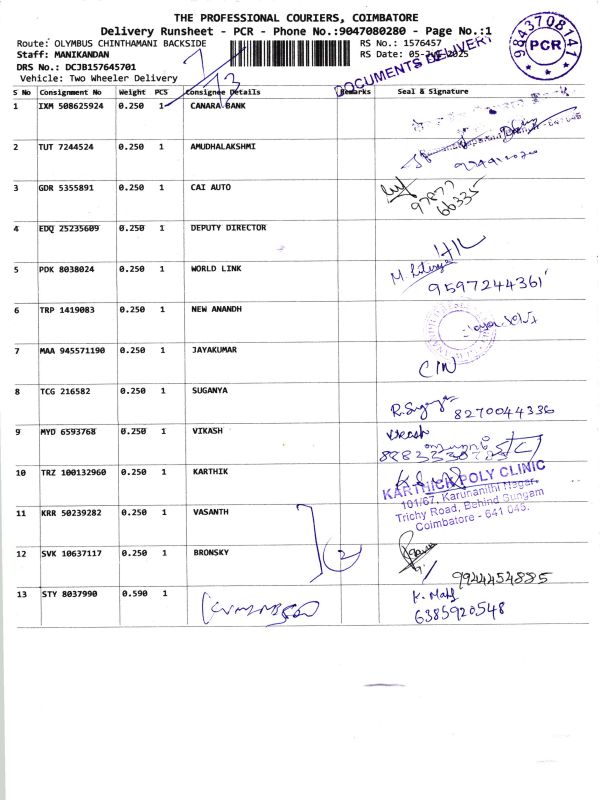 THE PROFESSIONAL COURIERS, COIMBATORE
Delivery Runsheet - PCR - Phone No.:9047080280 - Page No.:1
Route: OLYMBUS CHINTHAMANI BACKSIDE RS No.: 1576457
Staff: MANIKANDAN RS Date: 05- -2025
DRS No.: DCJB157645701
Vehicle: Two Wheeler Delivery
DOCUMENTS DELIVERY
9843708141
PCR
7/13
S No Consignment No Weight PCS Consignee Details Remarks Seal & Signature
1 IXM 508625924 0.250 1 CANARA BANK
2 TUT 7244524 0.250 1 AMUDHALAKSHMI
3 GDR 5355891 0.250 1 CAI AUTO
97877
66335
4 EDQ 25235609 0.250 1 DEPUTY DIRECTOR
5 PDK 8038024 0.250 1 WORLD LINK
9597244361
6 TRP 1419083 0.250 1 NEW ANANDH
7 MAA 945571190 0.250 1 JAYAKUMAR
8 TCG 216582 0.250 1 SUGANYA
8270044336
9 MYD 6593768 0.250 1 VIKASH
Vikash
10 TRZ 100132960 0.250 1 KARTHIK
KARTHICK POLY CLINIC
101/67, Karunanithi Nagar,
Trichy Road, Behind Sungam
Coimbatore - 641 045.
11 KRR 50239282 0.250 1 VASANTH
2
12 SVK 10637117 0.250 1 BRONSKY
9944454885
13 STY 8037990 0.590 1
6385920548